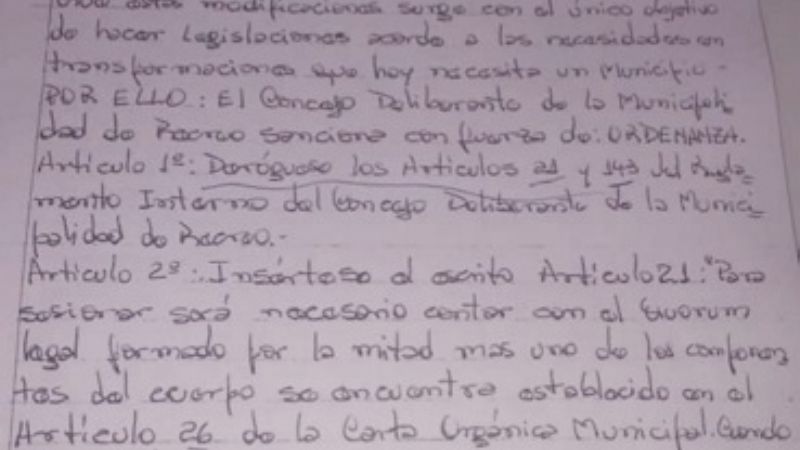 estas modificaciones surge con el único objetivo
de hacer Legislaciones acorde a las necesidades en
transformaciones que hoy necesita un Municipio.-
POR ELLO: El Concejo Deliberante de la Municipali
dad de Recreo sanciona con fuerza de: ORDENANZA.
Artículo 1º: Deróguese los Artículos 21 y 143 del Regla=
mento Interno del Concejo Deliberante de la Munici=
palidad de Recreo.-
Artículo 2º: Insértese el escrito Artículo 21: "Para
sesionar será necesario contar con el Quorum
legal formado por la mitad mas uno de los componen
tes del cuerpo se encuentra establecido en el
Artículo 26 de la Carta Orgánica Municipal. Cuando